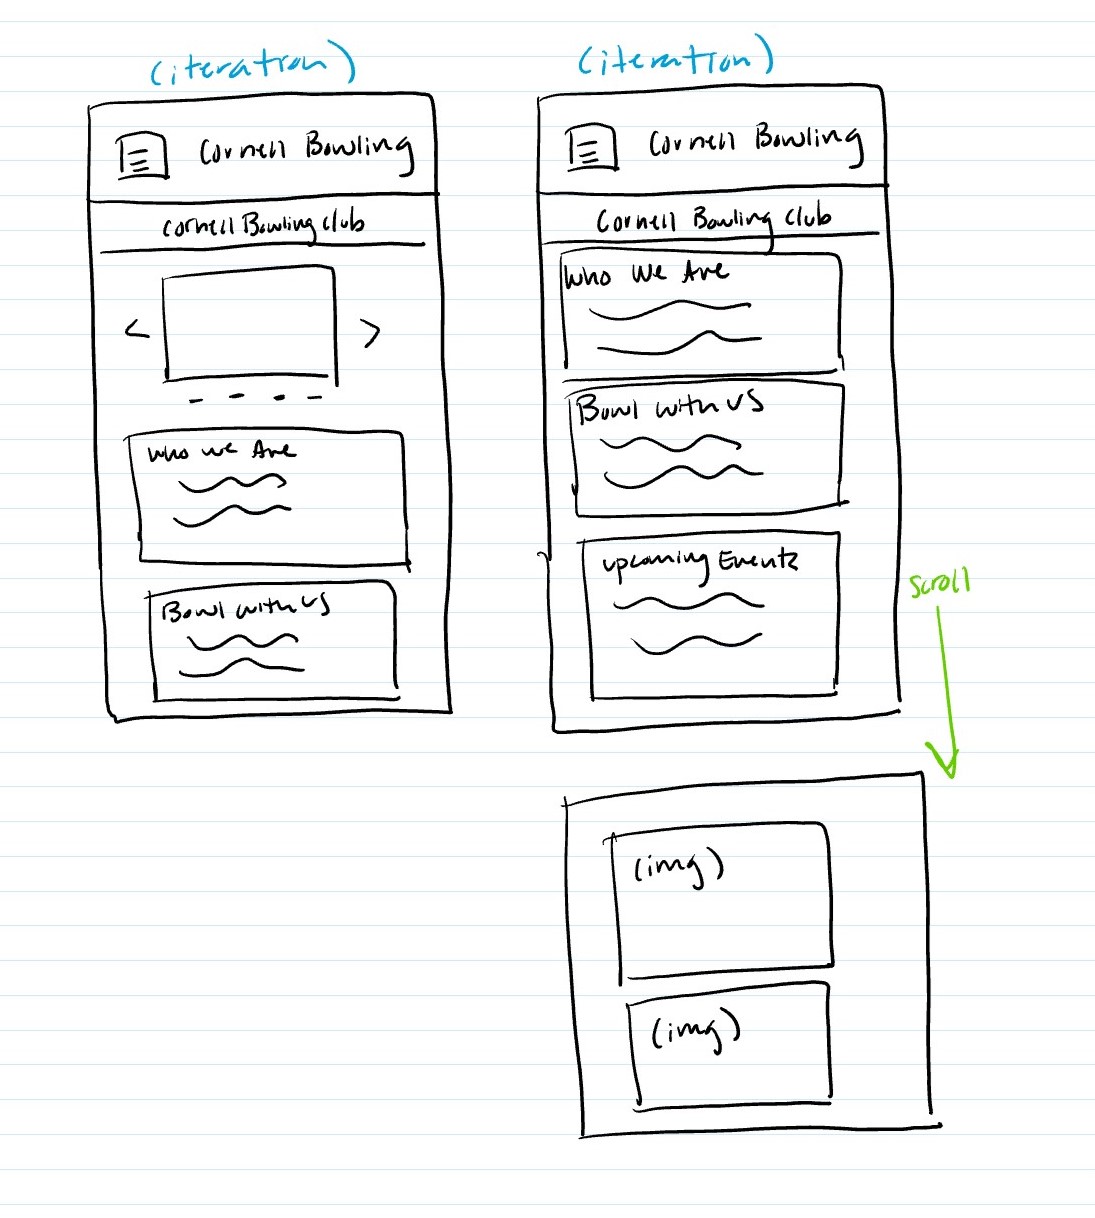 (iteration)
Cornell Bowling
Cornell Bowling club
Who we Are
Bowl with us
(iteration)
Cornell Bowling
Cornell Bowling Club
Who We Are
Bowl with us
upcoming Events
scroll
(img)
(img)